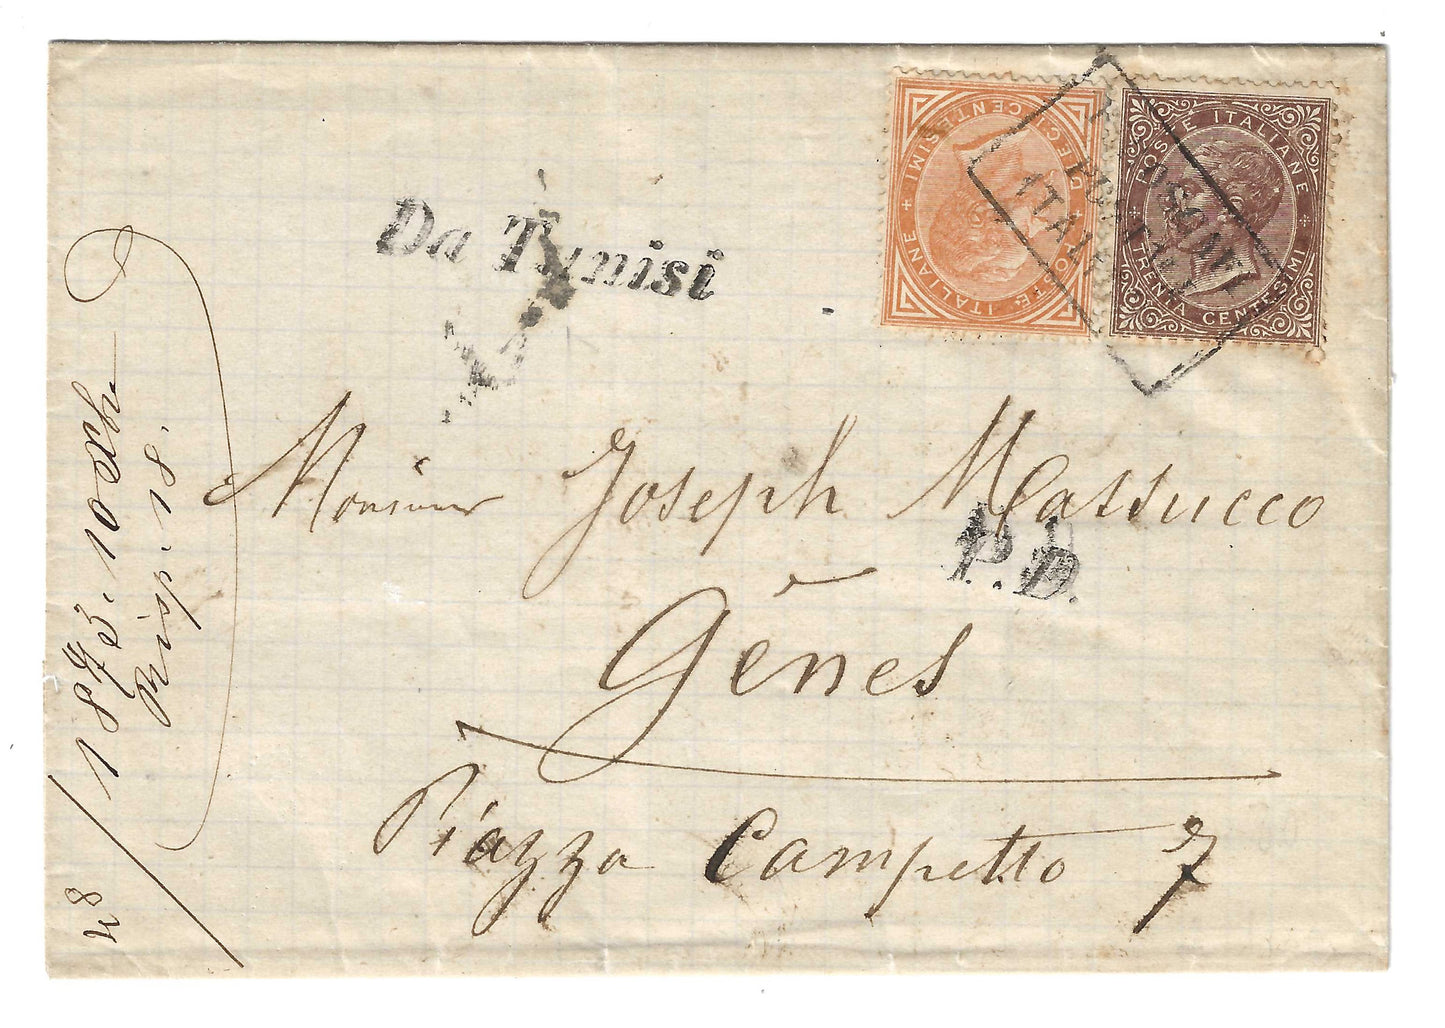 Da Tunisi
POSTE ITALIANE
DIECI CENTESIMI
POSTE ITALIANE
TRENTA CENTESIMI
ITAL
Monsieur Joseph Massucco
P.D.
Gênes
Piazza Campetto 7
1873. 10
Risp. 18.